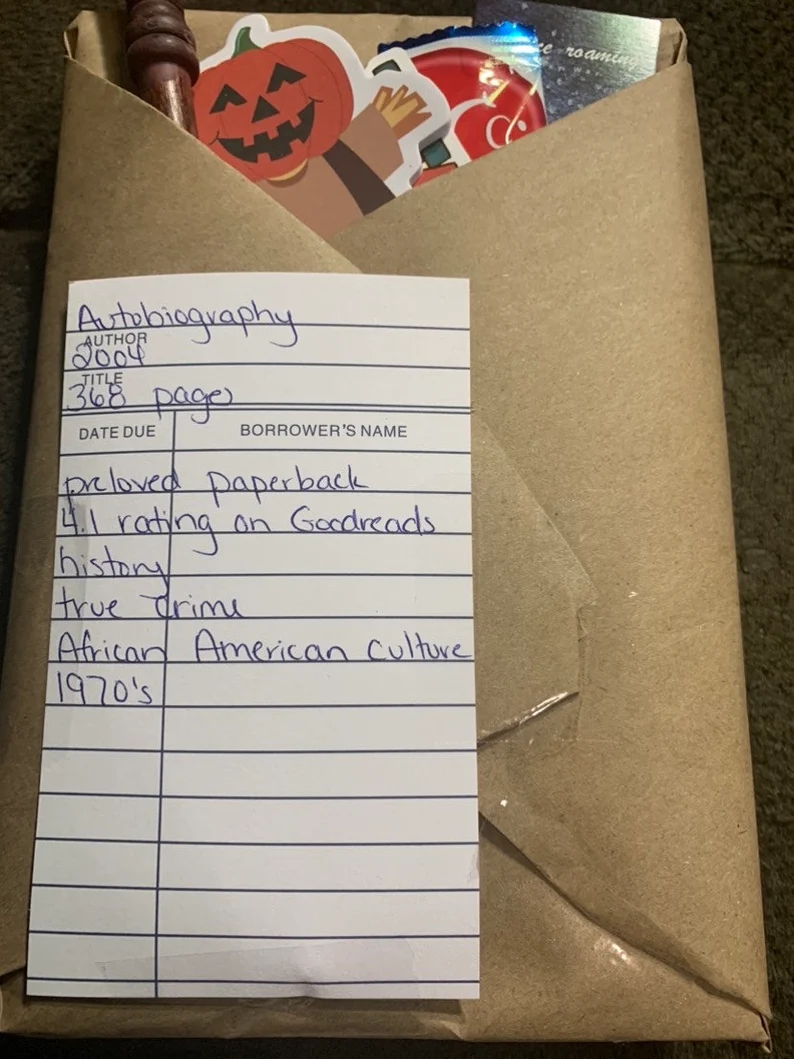 ce roaming
Autobiography
AUTHOR
2004
TITLE
368 pages
DATE DUE BORROWER'S NAME
preloved paperback
4.1 rating on Goodreads
history
true crime
African American culture
1970's